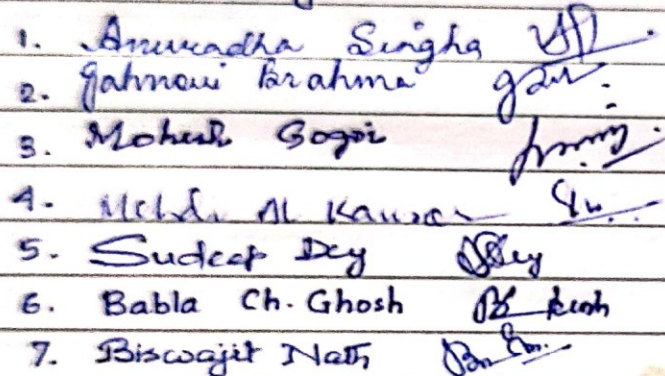 1. Anuradha Singha
2. Jahnavi Brahma
3. Mohesh Gogoi
4. Al Kausar
5. Sudeep Dey Dey
6. Babla Ch. Ghosh
7. Biswajit Nath